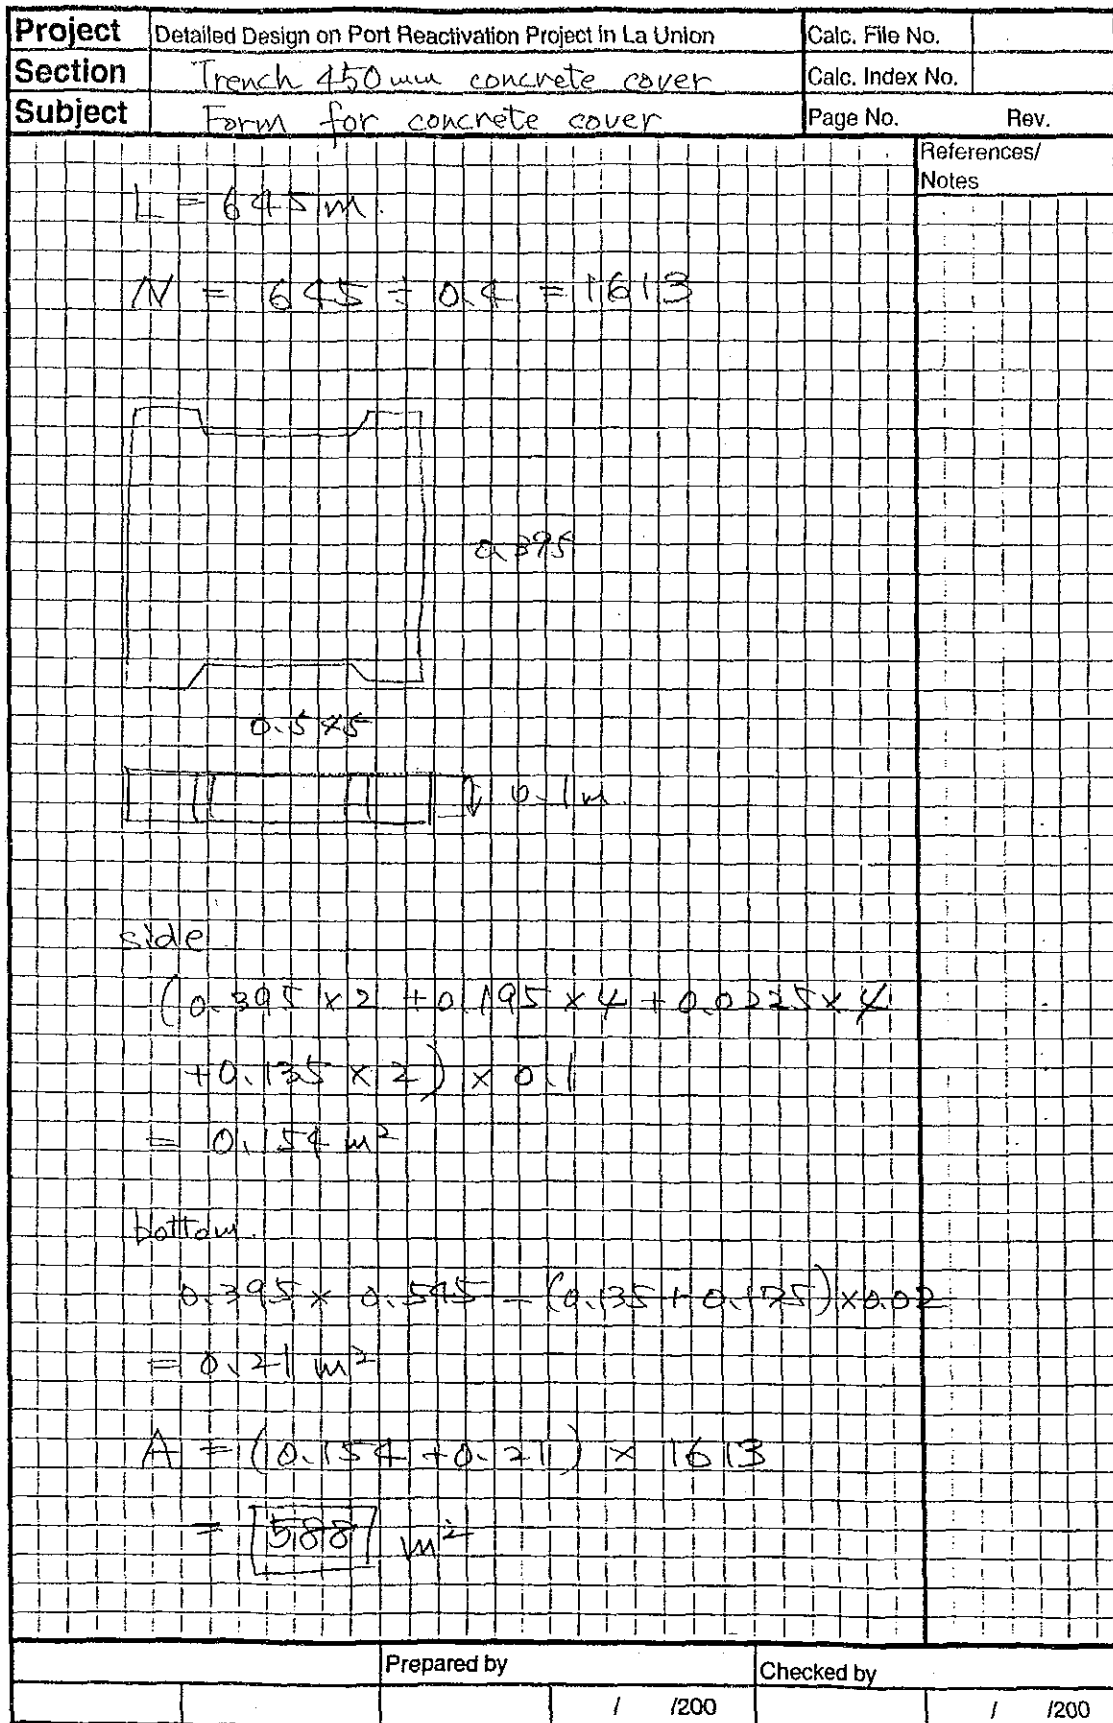 Project Detailed Design on Port Reactivation Project in La Union Calc. File No.
Section Trench 450mm concrete cover Calc. Index No.
Subject Form for concrete cover Page No. Rev.
References/
Notes
L = 645 m.
N = 645 ÷ 0.4 = 1613
0.395
0.545
0.1m
side
(0.395 × 2 + 0.195 × 4 + 0.0225 × 4
+0.135 × 2) × 0.1
= 0.154 m²
bottom.
0.395 × 0.545 - (0.135 + 0.175) × 0.02
= 0.21 m²
A = (0.154 + 0.21) × 1613
= 588 m²
Prepared by Checked by
/ /200 / /200